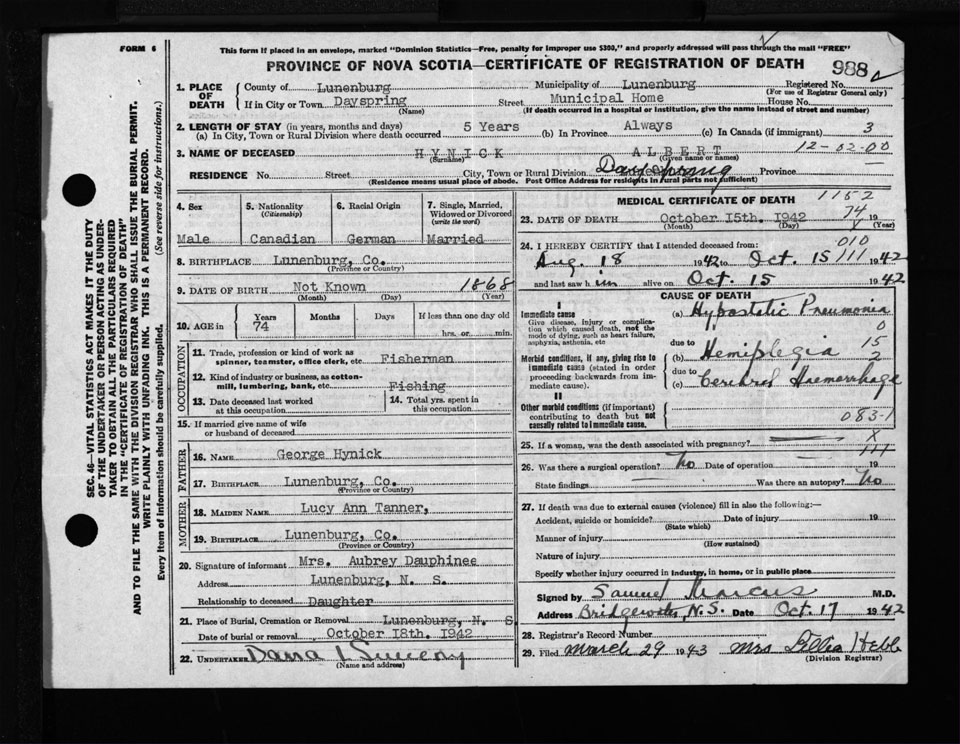 FORM 6
This form if placed in an envelope, marked "Dominion Statistics—Free, penalty for improper use $300," and properly addressed will pass through the mail "FREE"
PROVINCE OF NOVA SCOTIA—CERTIFICATE OF REGISTRATION OF DEATH
988
1. PLACE OF DEATH
County of Lunenburg Municipality of Lunenburg Registered No.
(For use of Registrar General only)
If in City or Town Dayspring Street Municipal Home House No.
(Name) (If death occurred in a hospital or institution, give the name instead of street and number)
2. LENGTH OF STAY (in years, months and days)
(a) In City, Town or Rural Division where death occurred 5 Years (b) In Province Always (c) In Canada (if immigrant) 3
12-02-00
3. NAME OF DECEASED HYNICK ALBERT
(Surname) (Given name or names)
RESIDENCE No. Street City, Town or Rural Division Dayspring Province
(Residence means usual place of abode. Post Office Address for residents in rural parts not sufficient)
4. Sex
Male
5. Nationality
(Citizenship)
Canadian
6. Racial Origin
German
7. Single, Married, Widowed or Divorced
(write the word)
Married
8. BIRTHPLACE Lunenburg, Co.
(Province or Country)
9. DATE OF BIRTH Not Known 1868
(Month) (Day) (Year)
10. AGE in Years 74 Months Days If less than one day old
hrs. or min.
OCCUPATION
11. Trade, profession or kind of work as spinner, teamster, office clerk, etc. Fisherman
12. Kind of industry or business, as cotton-mill, lumbering, bank, etc. Fishing
13. Date deceased last worked at this occupation
14. Total yrs. spent in this occupation
15. If married give name of wife or husband of deceased
FATHER
16. NAME George Hynick
17. BIRTHPLACE Lunenburg, Co.
(Province or Country)
MOTHER
18. MAIDEN NAME Lucy Ann Tanner,
19. BIRTHPLACE Lunenburg, Co.
(Province or Country)
20. Signature of informant Mrs. Aubrey Dauphinee
Address Lunenburg, N. S.
Relationship to deceased Daughter
21. Place of Burial, Cremation or Removal Lunenburg, N. S.
Date of burial or removal October 18th. 1942
22. UNDERTAKER Dana L Sweeny
(Name and address)
MEDICAL CERTIFICATE OF DEATH
1152
74
23. DATE OF DEATH October 15th. 1942 19
(Month) (Day) (Year)
24. I HEREBY CERTIFY that I attended deceased from:
010
Aug. 18 1942 to Oct. 15 111 1942
and last saw him alive on Oct. 15 1942
CAUSE OF DEATH
I
Immediate cause
Give disease, injury or complication which caused death, not the mode of dying, such as heart failure, asphyxia, asthenia, etc
(a) Hypostatic Pneumonia
0
due to 15
Morbid conditions, if any, giving rise to immediate cause (stated in order proceeding backwards from immediate cause).
(b) Hemiplegia 2
due to
(c) Cerebral Haemorrhage
II
Other morbid conditions (if important) contributing to death but not causally related to immediate cause.
083-1
25. If a woman, was the death associated with pregnancy? X
111
26. Was there a surgical operation? No Date of operation 19
State findings Was there an autopsy? No
27. If death was due to external causes (violence) fill in also the following:—
Accident, suicide or homicide? Date of injury 19
(State which)
Manner of injury
(How sustained)
Nature of injury
Specify whether injury occurred in industry, in home, or in public place
Signed by Samuel Marcus M.D.
Address Bridgewater, N.S. Date Oct. 17 1942
28. Registrar's Record Number
29. Filed March 29 1943 Mrs Hebb
(Division Registrar)
SEC. 46—VITAL STATISTICS ACT MAKES IT THE DUTY
OF THE UNDERTAKER OR PERSON ACTING AS UNDER-
TAKER TO OBTAIN ALL THE PARTICULARS REQUIRED
IN THE "CERTIFICATE OF REGISTRATION OF DEATH"
AND TO FILE THE SAME WITH THE DIVISION REGISTRAR WHO SHALL ISSUE THE BURIAL PERMIT.
WRITE PLAINLY WITH UNFADING INK. THIS IS A PERMANENT RECORD.
Every item of information should be carefully supplied. (See reverse side for instructions.)